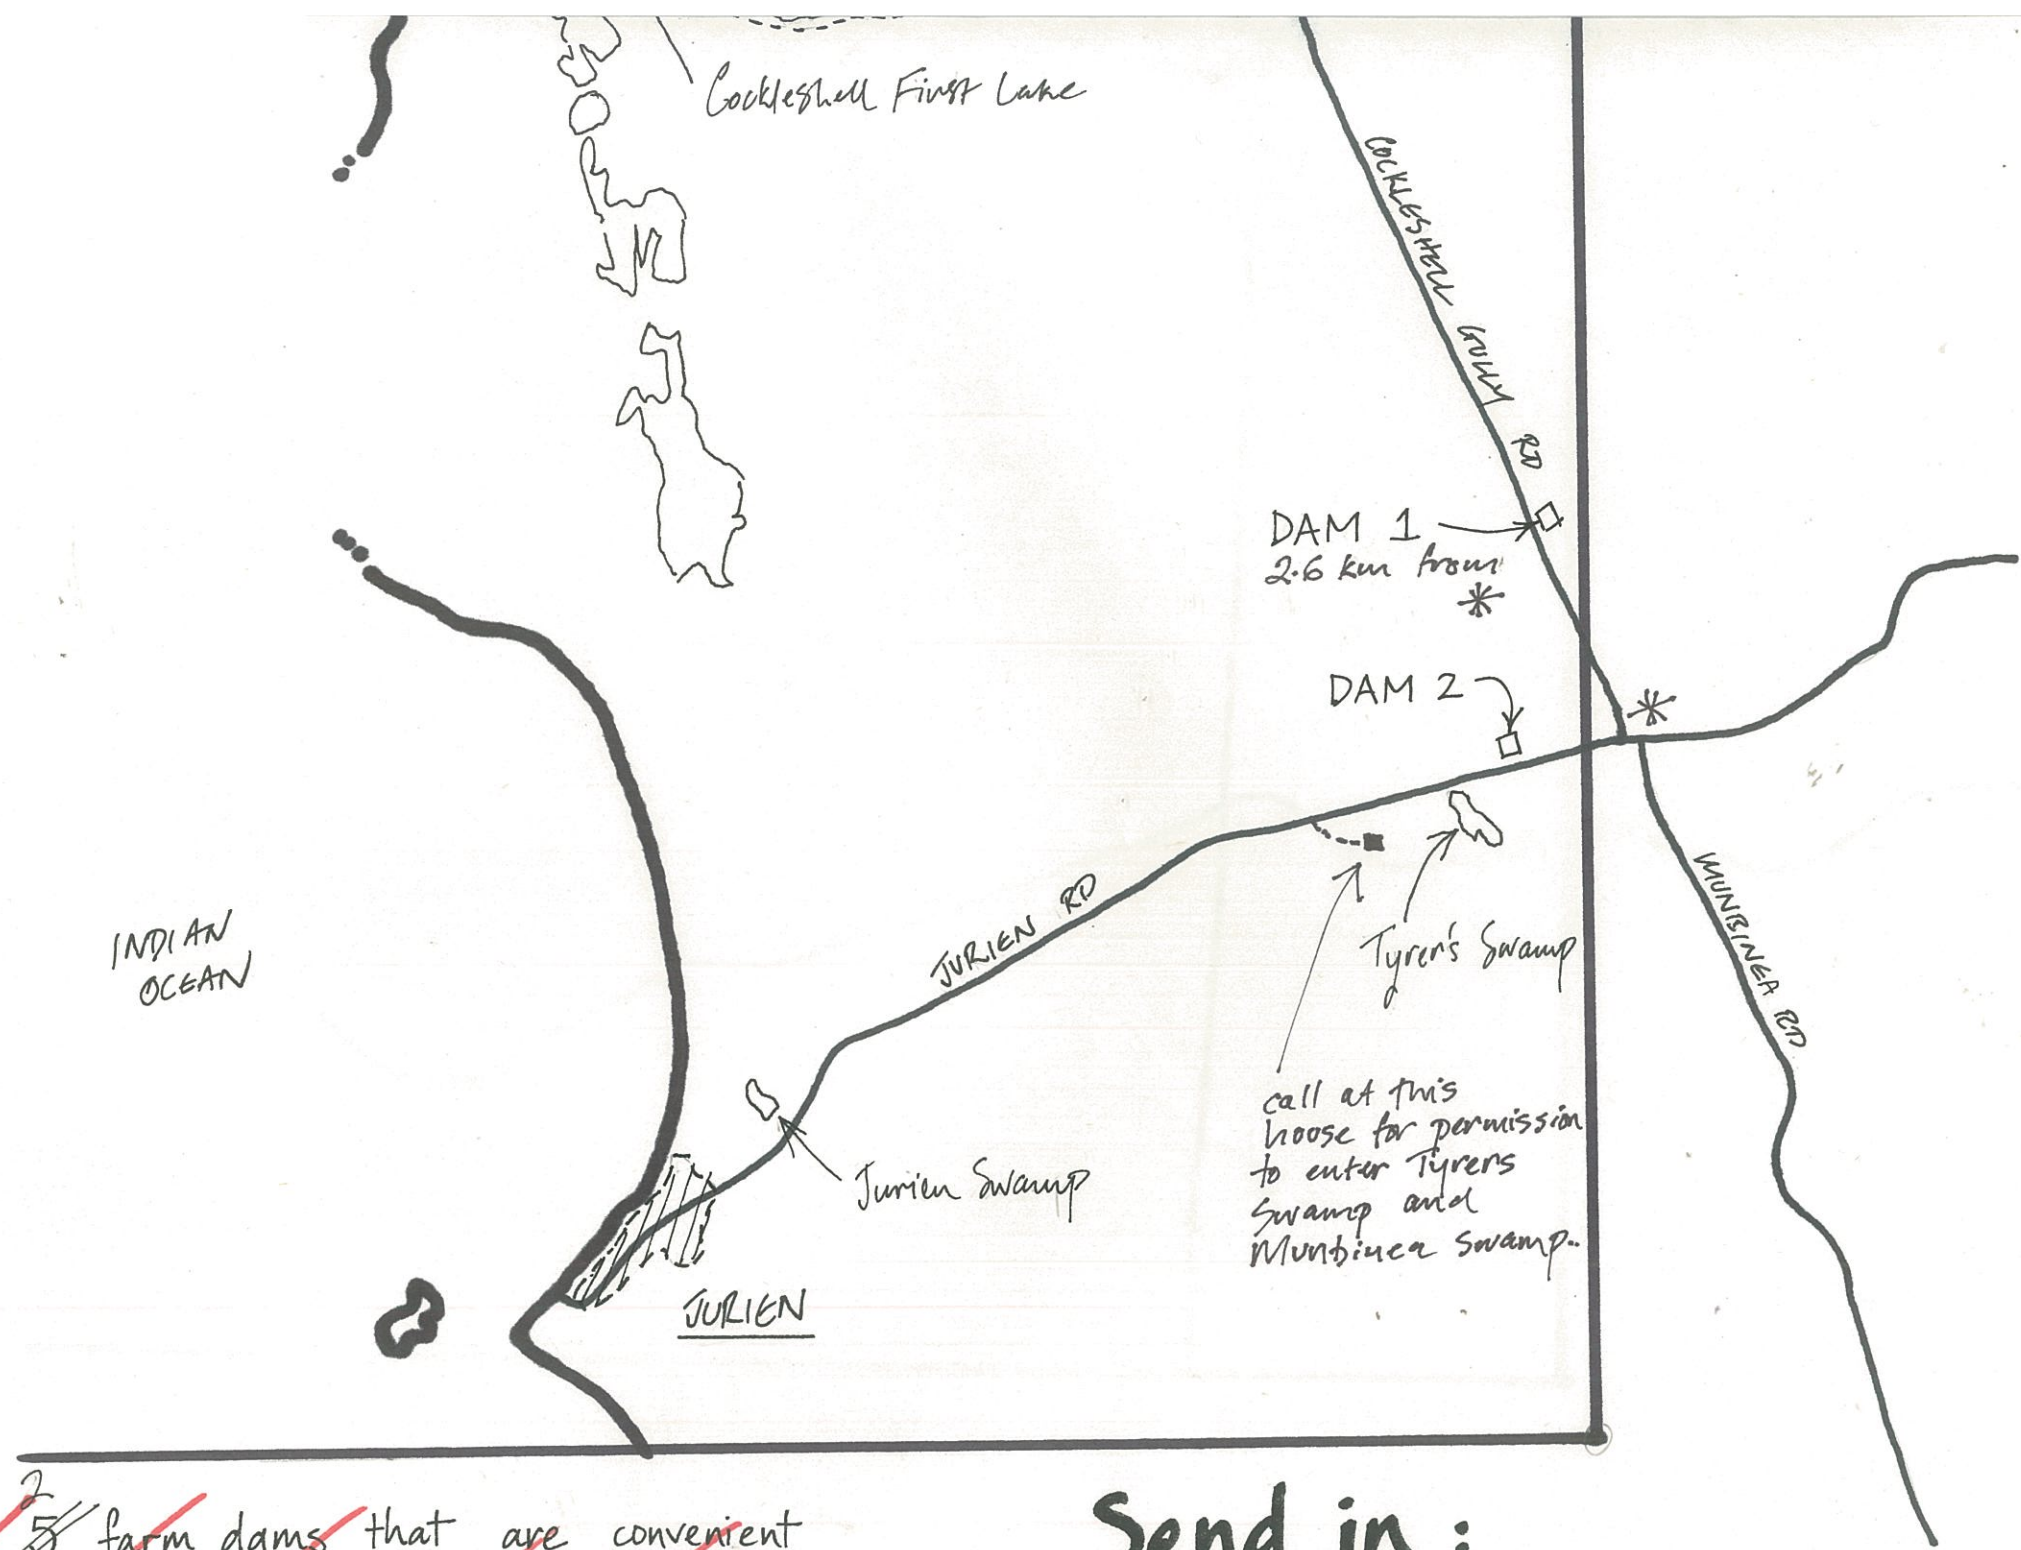 Cockleshell First Lake
COCKLESHELL GULLY RD
DAM 1
2.6 km from
DAM 2
JURIEN RD
Tyrer's Swamp
MUNBINEA RD
INDIAN
OCEAN
call at this
hoose for permission
to enter Tyrers
Swamp and
Munbinea Swamp..
Jurien Swamp
JURIEN
2
5 farm dams that are convenient
Send in :